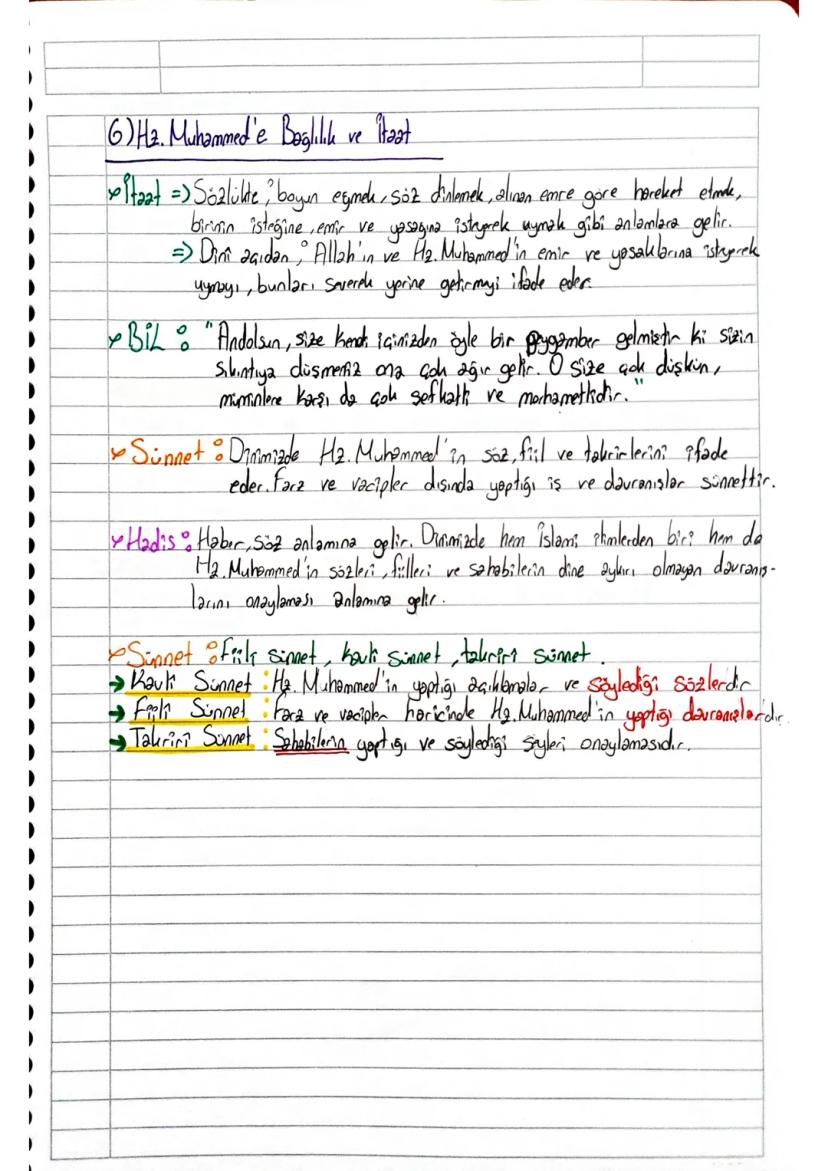 6) Hz. Muhammed'e Bağlılık ve İtaat
İtaat => Sözlükte; boyun eğmek, söz dinlemek, alınan emre göre hareket etmek,
birinin isteğine, emir ve yasağına isteyerek uymak gibi anlamlara gelir.
=> Dini açıdan; Allah'ın ve Hz. Muhammed'in emir ve yasaklarına isteyerek
uymayı, bunları severek yerine getirmeyi ifade eder.
BİL : "Andolsun, size kendi içinizden öyle bir peygamber gelmiştir ki sizin
sıkıntıya düşmeniz ona çok ağır gelir. O size çok düşkün,
müminlere karşı da çok şefkatli ve merhametlidir."
Sünnet : Dinimizde Hz. Muhammed'in söz, fiil ve takrirlerini ifade
eder. Farz ve vacipler dışında yaptığı iş ve davranışlar sünnettir.
Hadis : Haber, söz anlamına gelir. Dinimizde hem İslami ilimlerden biri hem de
Hz. Muhammed'in sözleri, fiilleri ve sahabilerin dine aykırı olmayan davranış-
larını onaylaması anlamına gelir.
Sünnet : Fiili sünnet, kavli sünnet, takriri sünnet.
→ Kavli Sünnet : Hz. Muhammed'in yaptığı açıklamalar ve söylediği sözlerdir
→ Fiili Sünnet : Farz ve vacipler haricinde Hz. Muhammed'in yaptığı davranışlardır.
→ Takriri Sünnet : Sahabilerin yaptığı ve söylediği şeyleri onaylamasıdır.